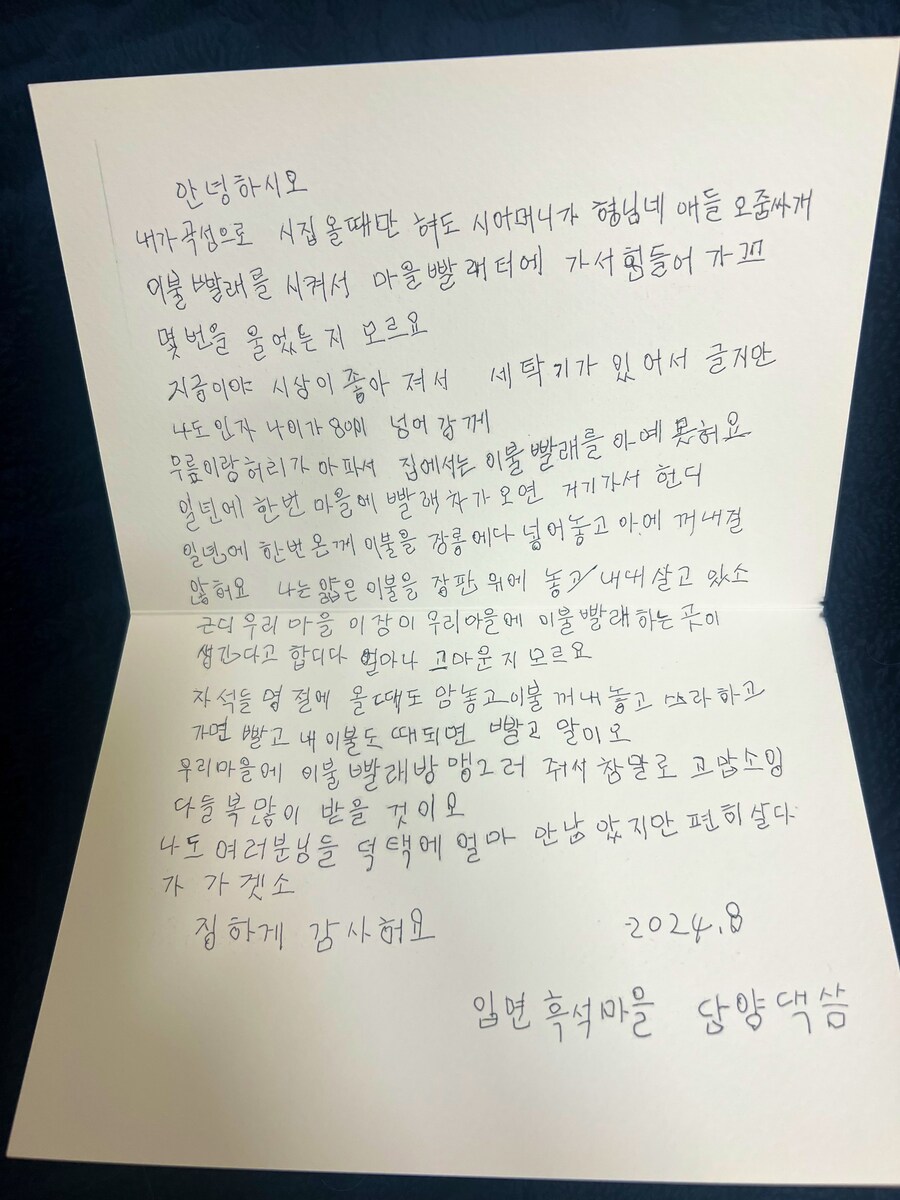 안녕하시오
내가 곡성으로 시집 올때만 혀도 시어머니가 형님네 애들 오줌싸개
이불 빨래를 시켜서 마을 빨래터에 가서 힘들어 가꼬
몇번을 울었는지 모르요
지금이야 시상이 좋아 져서 세탁기가 있어서 글지만
나도 인자 나이가 80이 넘어 감께
무릎이랑 허리가 아파서 집에서는 이불 빨래를 아예 못혀요
일년에 한번 마을에 빨래차가 오면 거기가서 헌디
일년에 한번 온께 이불을 장롱에다 넣어놓고 아에 꺼내질
않혀요 나는 얇은 이불을 장판 위에 놓고 내내 살고 있소
근디 우리 마을 이장이 우리마을에 이불빨래 하는 곳이
생긴다고 합디다 얼마나 고마운지 모르요
자석들 명절에 올때도 암놓고 이불 꺼내 놓고 쓰라 하고
가면 빨고 내 이불도 때되면 빨고 말이오
우리마을에 이불 빨래방 맹그러 줘서 참말로 고맙소잉
다들 복많이 받을 것이오
나도 여러분님들 덕택에 얼마 안남았지만 편히 살다
가 가겟소
집하게 감사혀요 2024.8
입면 흑석마을 담양댁 씀